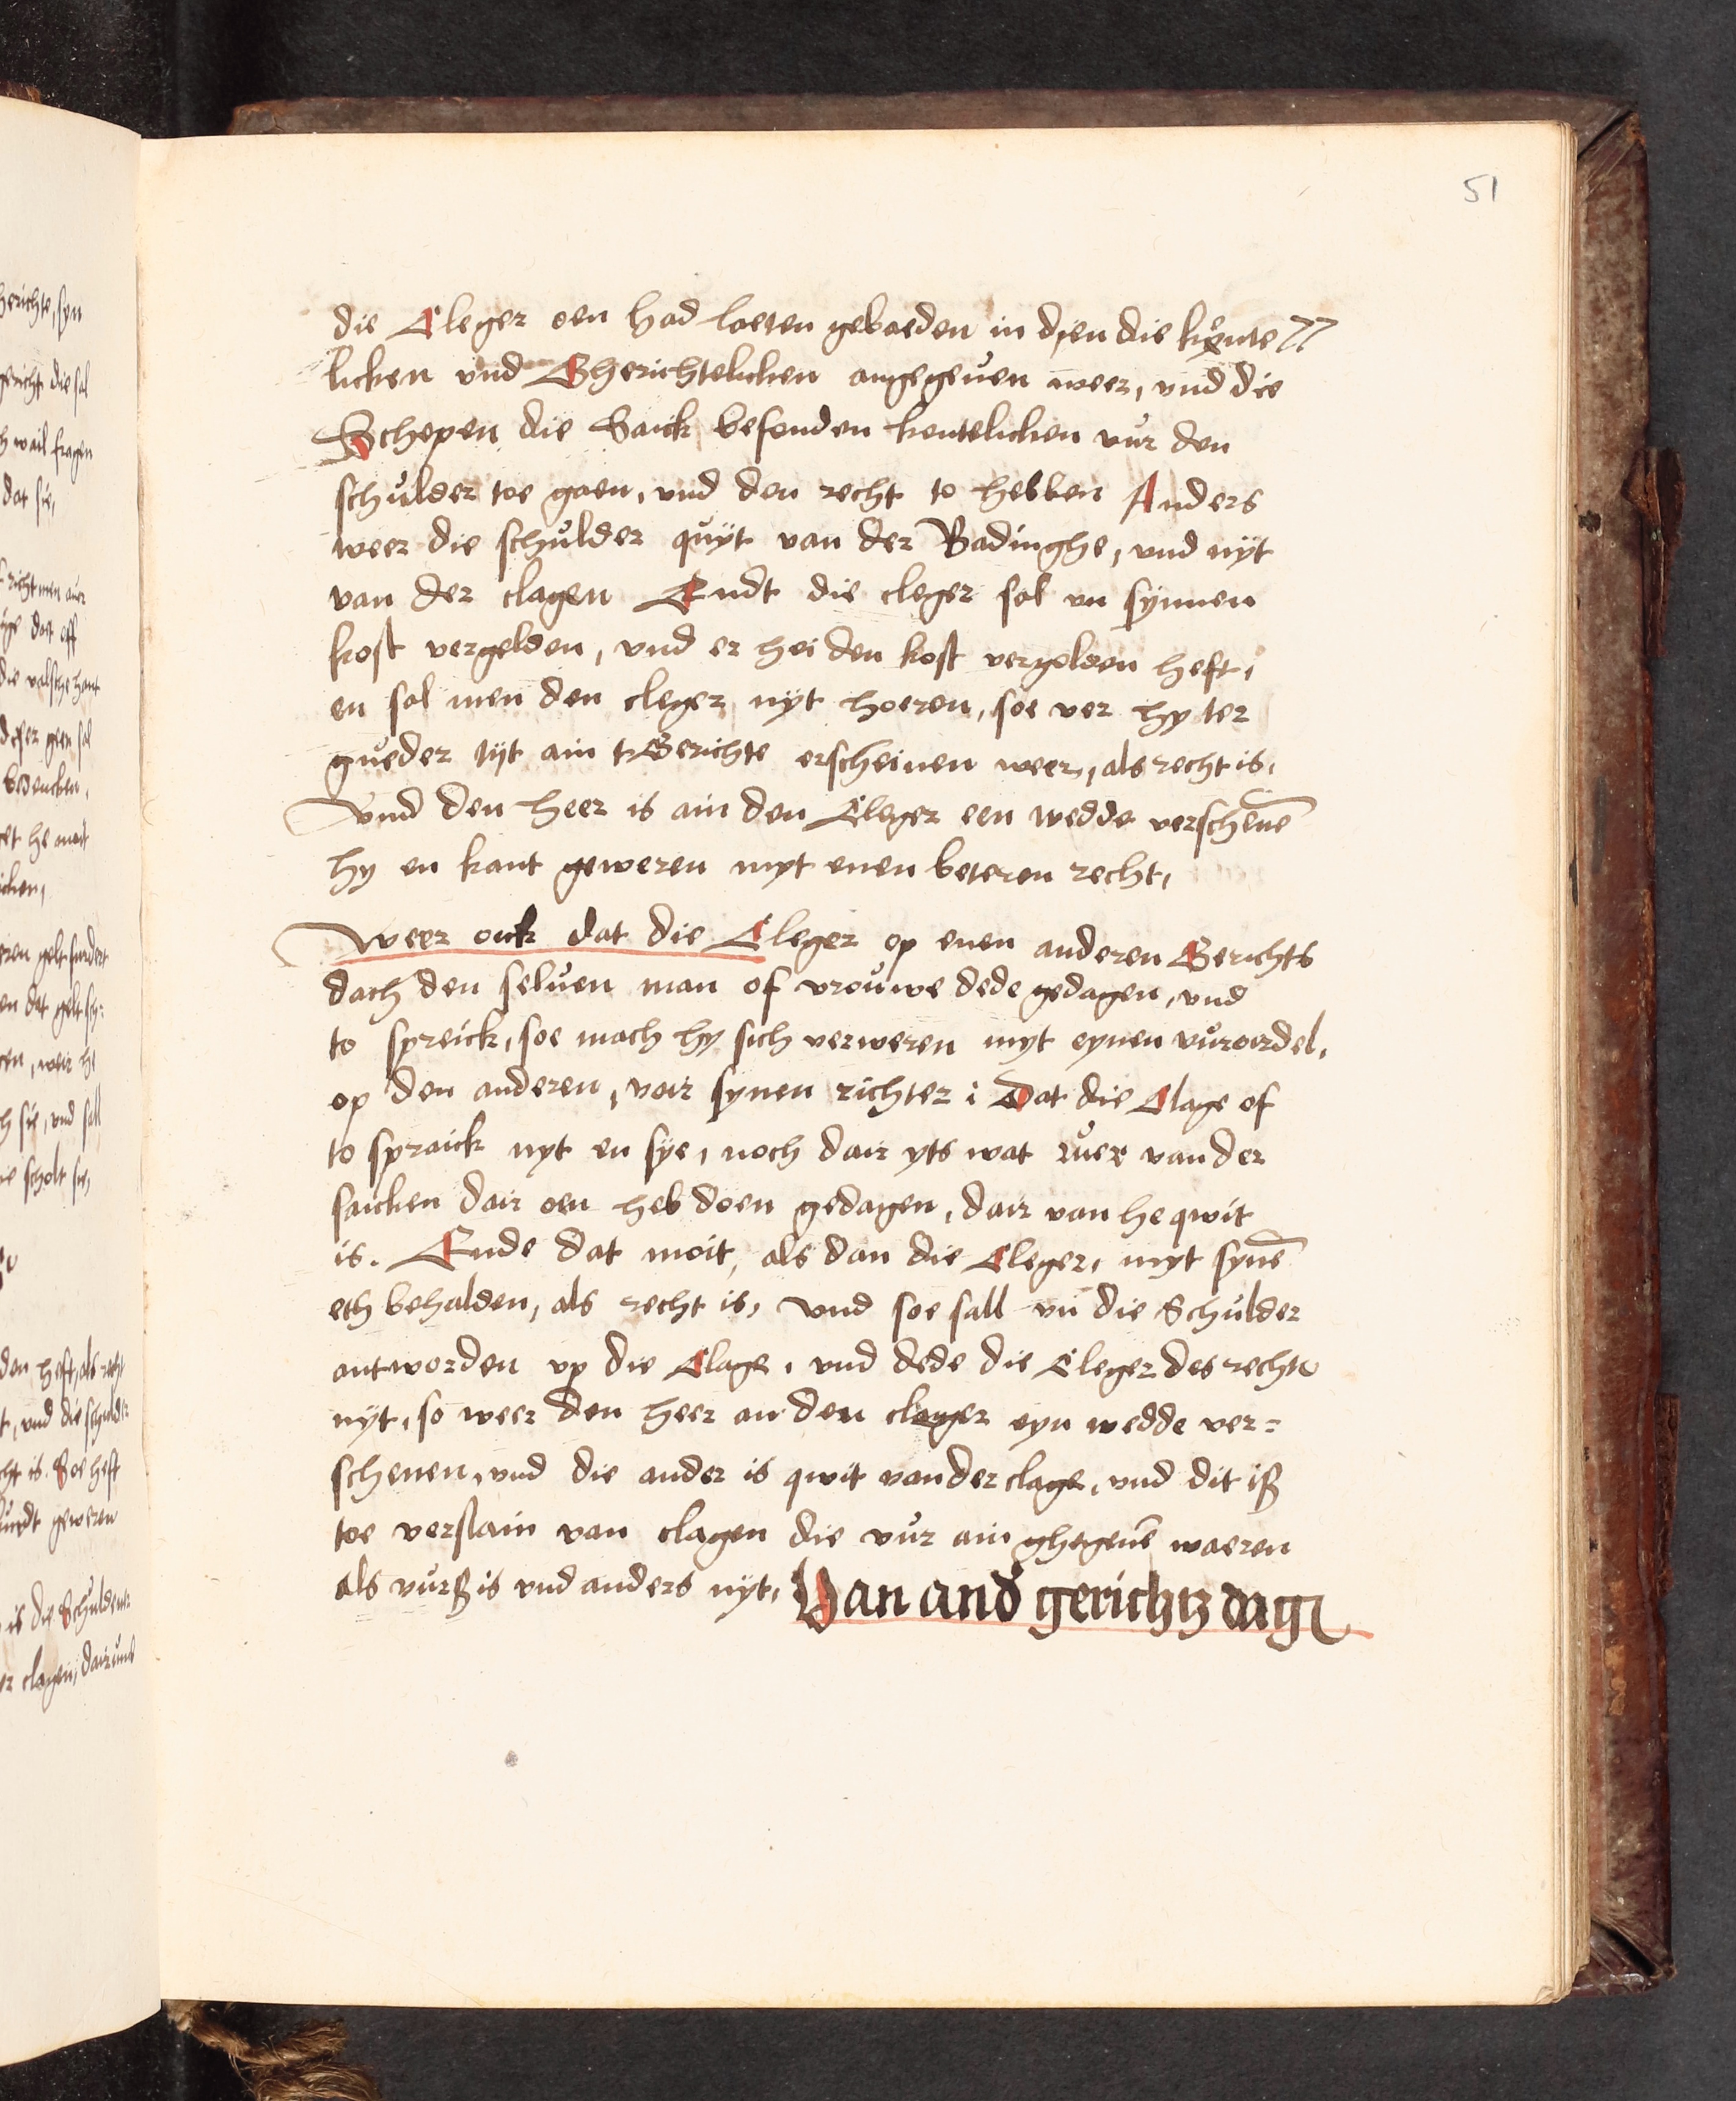 51
die Cleger oen had laeten gebaeden in dien die kente
licken vnd Gherichtelicken angegeuen weer, vnd die
Schepen die Saick befonden kentelicken vur den
schulder toe gaen, vnd den recht to hebben Anders
weer die schulder quÿt van der Badinghe, vnd nÿt
van der clagen Endt die cleger sol vn sÿnnen
kost vergelden, vnd er hei den kost vergolden heft,
en sol men den cleger nyt hoeren, soe ver hy ter
gueder tijt ain tGerichte erscheinen weer, als recht is,
Vnd den heer is ain den Cleger een wedde verschenē
hy en kant geweren myt enen beteren recht,
Weer ouk dat die Cleger op enen anderen Gerichts
dach den seluen man of vrouwe dede gedagen, vnd
to spreick, soe mach hy sich verweren myt eynen vuroirdel,
op den anderen, voir synen richter i Dat die Clage of
to spraick nyt en sÿe, noch dair yts wat ruer van der
saicken dair oen heb doen gedagen, dair van he qwit
is. Ende dat moit, als dan die Cleger, myt synē
eth behalden, als recht is, Vnd soe sall vn die Schulder
antworden vp die Clage, vnd dede die Cleger des rechte
nÿt, so weer den heer an den cleger eyn wedde ver=
schenen, vnd die ander is qwit van der clage, vnd dit iß
toe verstain van clagen die vur ain ghegeuē waeren
als vurß is vnd anders nÿt, Van and gerichtz dag